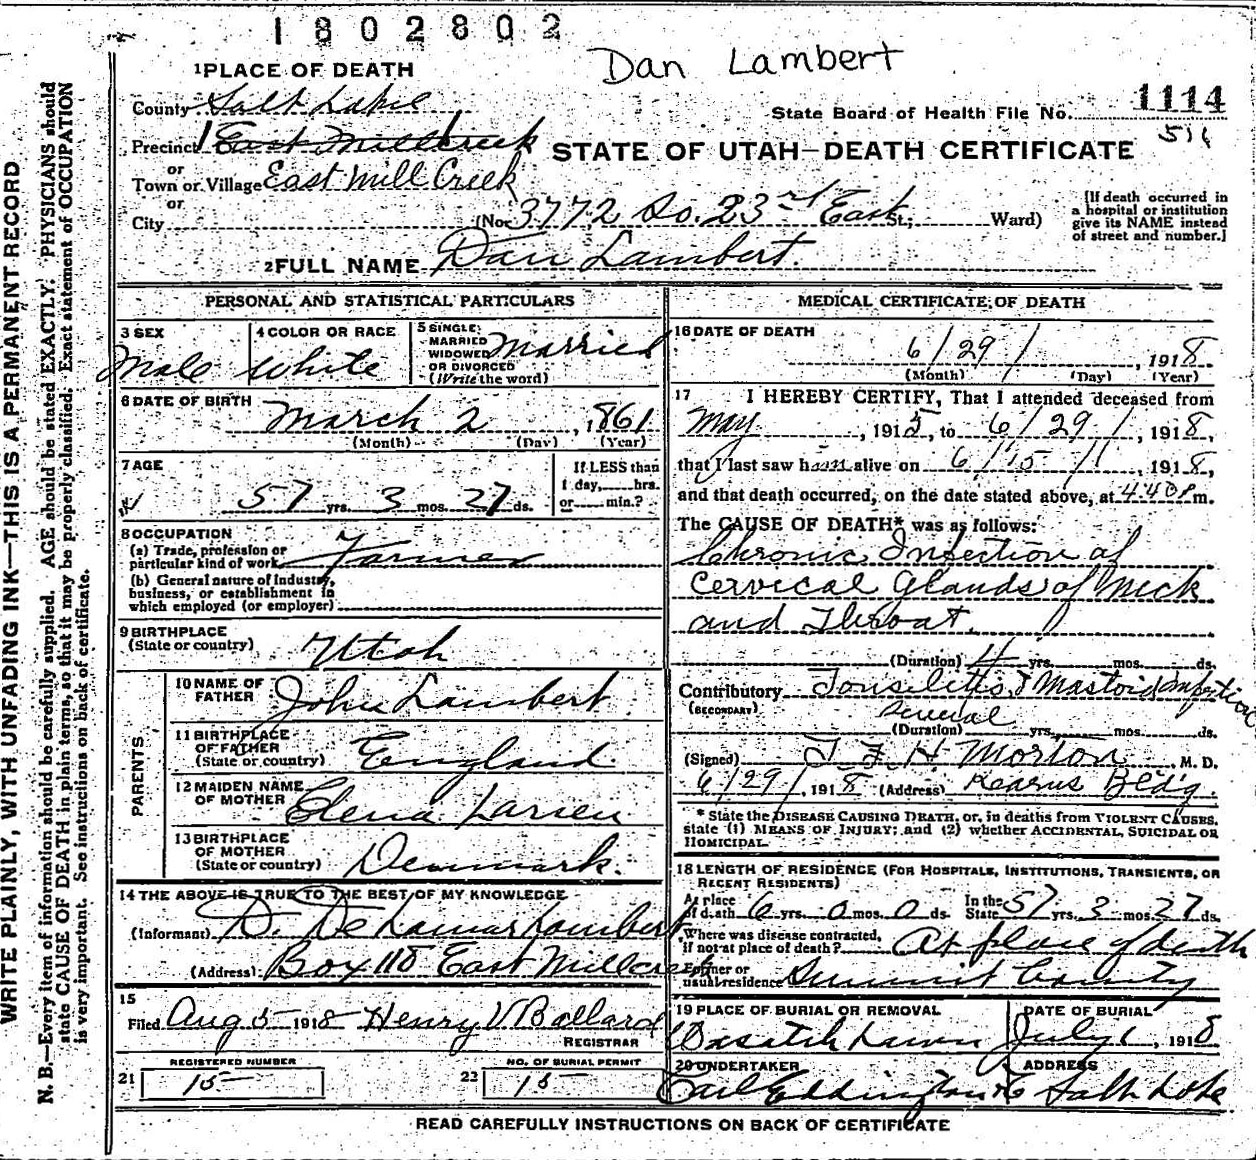 1802802
Dan Lambert
1 PLACE OF DEATH
County Salt Lake
State Board of Health File No. 1114
511
Precinct 1 East Millcreek
STATE OF UTAH—DEATH CERTIFICATE
or
Town or Village East Mill Creek
or
City (No. 3772 So. 23rd East St.; Ward)
[If death occurred in
a hospital or institution
give its NAME instead
of street and number.]
2 FULL NAME Dan Lambert.
PERSONAL AND STATISTICAL PARTICULARS
3 SEX
Male
4 COLOR OR RACE
White
5 SINGLE,
MARRIED
WIDOWED
OR DIVORCED
(Write the word)
Married
6 DATE OF BIRTH
March 2, 1861
(Month) (Day) (Year)
7 AGE
57 yrs. 3 mos. 27 ds.
If LESS than
1 day, hrs.
or min.?
8 OCCUPATION
(a) Trade, profession or
particular kind of work Farmer
(b) General nature of Industry,
business, or establishment in
which employed (or employer)
9 BIRTHPLACE
(State or country) Utah
PARENTS
10 NAME OF
FATHER John Lambert
11 BIRTHPLACE
OF FATHER
(State or country) England
12 MAIDEN NAME
OF MOTHER Elena Larsen
13 BIRTHPLACE
OF MOTHER
(State or country) Denmark.
14 THE ABOVE IS TRUE TO THE BEST OF MY KNOWLEDGE
(Informant) D. De Lamar Lambert
(Address) Box 118 East Millcreek
15
Filed Aug 5 1918 Henry V Ballard
REGISTRAR
REGISTERED NUMBER
21 15
NO. OF BURIAL PERMIT
22 15
MEDICAL CERTIFICATE OF DEATH
16 DATE OF DEATH
6/29/, 1918
(Month) (Day) (Year)
17 I HEREBY CERTIFY, That I attended deceased from
May, 1915, to 6/29/, 1918,
that I last saw him alive on 6/15/, 1918,
and that death occurred, on the date stated above, at 4.40 P m.
The CAUSE OF DEATH* was as follows:
Chronic Infection of
Cervical Glands of Neck
and Throat.
(Duration) 4 yrs. mos. ds.
Contributory Tonsilitis & Mastoid Infection
(SECONDARY)
several
(Duration) yrs. mos. ds.
(Signed) T. F. H. Morton, M. D.
6/29/, 1918 (Address) Kearns Bldg.
* State the DISEASE CAUSING DEATH, or, in deaths from VIOLENT CAUSES,
state (1) MEANS OF INJURY; and (2) whether ACCIDENTAL, SUICIDAL OR
HOMICIDAL.
18 LENGTH OF RESIDENCE (FOR HOSPITALS, INSTITUTIONS, TRANSIENTS, OR
RECENT RESIDENTS)
At place
of death 6 yrs. 0 mos. 0 ds.
In the
State 57 yrs. 3 mos. 27 ds.
Where was disease contracted,
if not at place of death? At place of death
Former or
usual residence Summit County
19 PLACE OF BURIAL OR REMOVAL
Wasatch Lawn
DATE OF BURIAL
July 1, 1918
20 UNDERTAKER
Earl Eddington
ADDRESS
Salt Lake
READ CAREFULLY INSTRUCTIONS ON BACK OF CERTIFICATE
WRITE PLAINLY, WITH UNFADING INK—THIS IS A PERMANENT RECORD
N. B.—Every item of information should be carefully supplied. AGE should be stated EXACTLY. PHYSICIANS should
state CAUSE OF DEATH in plain terms, so that it may be properly classified. Exact statement of OCCUPATION
is very important. See instructions on back of certificate.